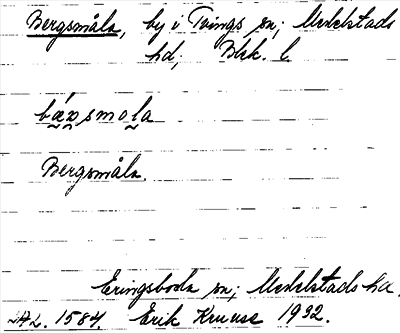 Bergsmåla, by i Tvings sn; Medelstads
hd; Blek. l.
Bergsmåla.
Eringsboda sn; Medelstads hd.
1584. Erik Kruuse 1932.